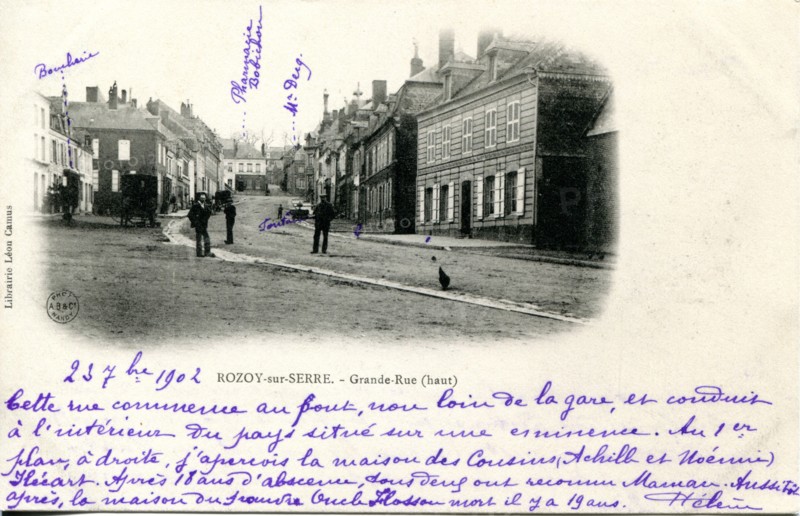 Boucherie
Pharmacie
Bobichon
Mr Deeg.
Fontaine
Librairie Léon Camus
PHOT
A.B&Cie
NANCY
23 7bre 1902
ROZOY-sur-SERRE. - Grande-Rue (haut)
Cette rue commence au pont, non loin de la gare, et conduit
à l'intérieur du pays situé sur une eminence. Au 1er
plan, à droite, j'aperçois la maison des Cousins (Achille et Noémie)
Hécart. Après 18 ans d'abscence, tous deux ont reconnu Maman. Aussitôt
après, la maison du pauvre Oncle Hosson mort il y a 19 ans. Hélène